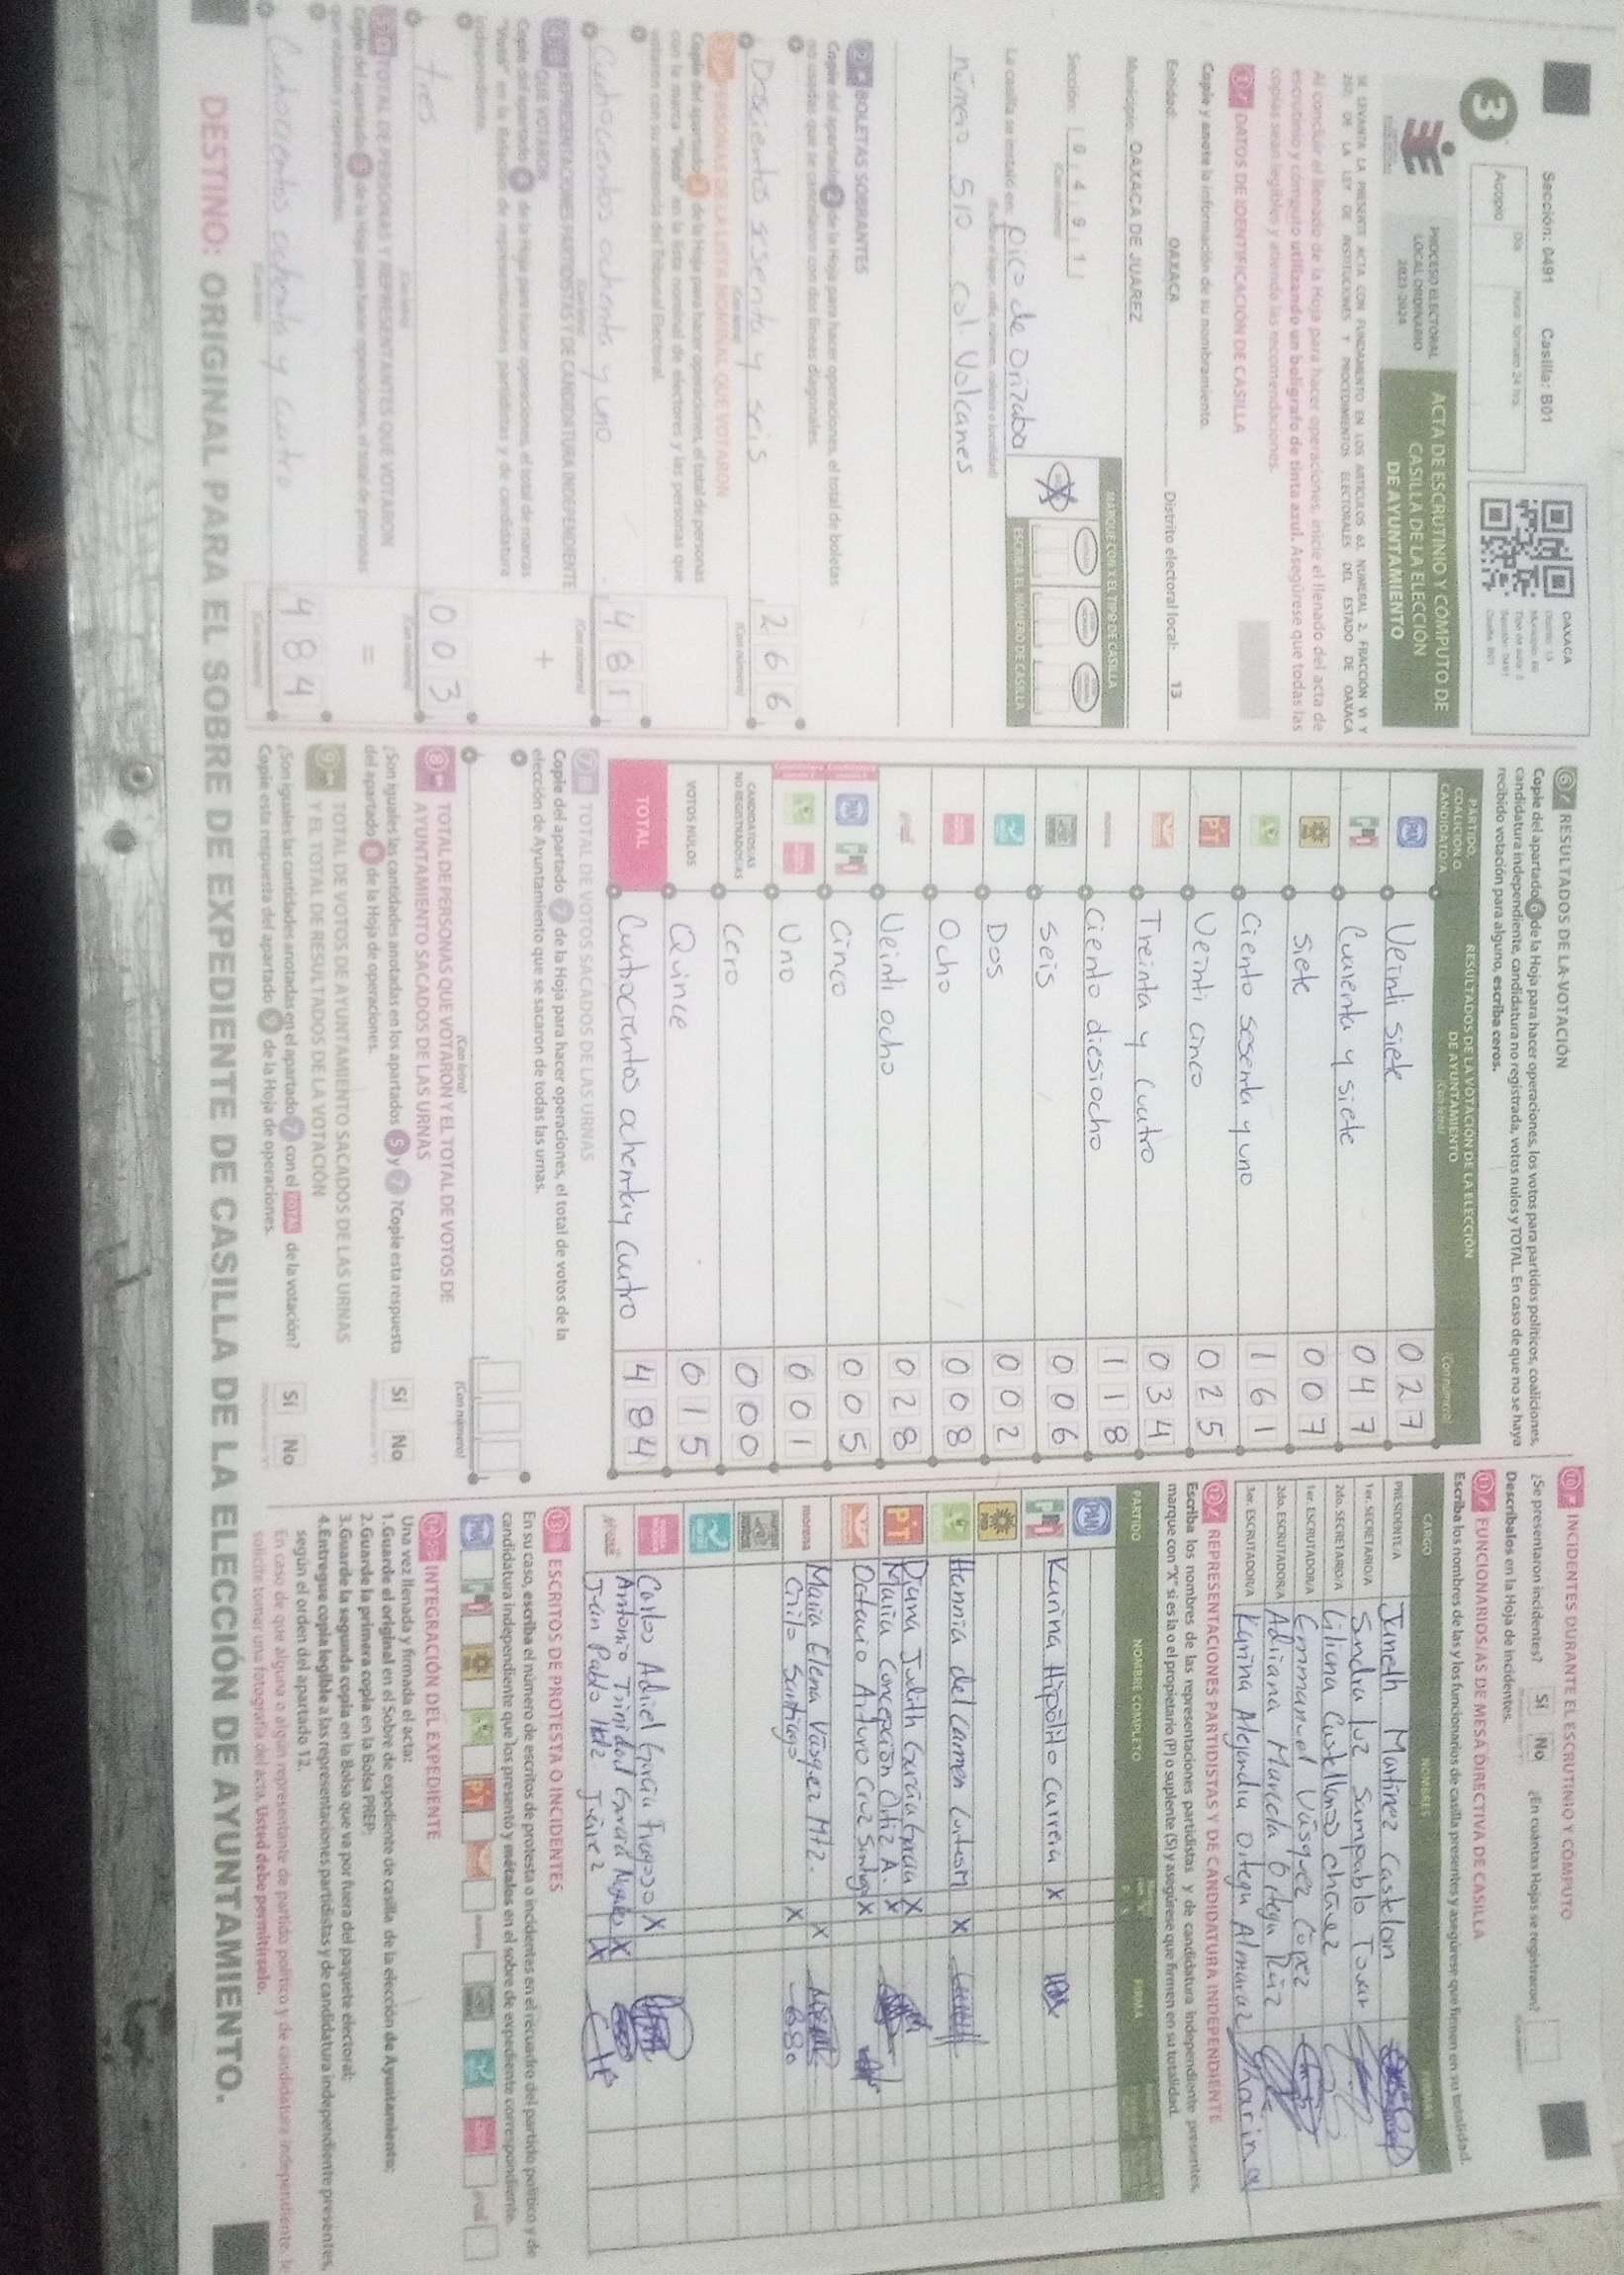 Sección: 0491 Casilla: B01
3
Acopio
Día Hora: formato 24 hrs.
OAXACA
PROCESO ELECTORAL
LOCAL ORDINARIO
2023-2024
ACTA DE ESCRUTINIO Y CÓMPUTO DE
CASILLA DE LA ELECCIÓN
DE AYUNTAMIENTO
SE LEVANTA LA PRESENTE ACTA CON FUNDAMENTO EN LOS ARTÍCULOS 63, NUMERAL 2, FRACCIÓN VI Y
DE LA LEY DE INSTITUCIONES Y PROCEDIMIENTOS ELECTORALES DEL ESTADO DE OAXACA
Al concluir el llenado de la Hoja para hacer operaciones, inicie el llenado del acta de
escrutinio y cómputo utilizando un bolígrafo de tinta azul. Asegúrese que todas las
copias sean legibles y atienda las recomendaciones.
1 DATOS DE IDENTIFICACIÓN DE CASILLA
Copie y anote la información de su nombramiento.
Entidad: OAXACA Distrito electoral local: 13
Municipio: OAXACA DE JUAREZ
Sección: 0 4 9 1
(Con número)
MARQUE CON X EL TIPO DE CASILLA
ESCRIBA EL NÚMERO DE CASILLA
La casilla se instaló en: pico de Orizaba
número 510 col. Volcanes
2 BOLETAS SOBRANTES
Copie del apartado 2 de la Hoja para hacer operaciones, el total de boletas
no usadas que se cancelaron con dos líneas diagonales.
Doscientos sesenta y seis 2 6 6
(Con letra) (Con número)
3 PERSONAS DE LA LISTA NOMINAL QUE VOTARON
Copie del apartado 3 de la Hoja para hacer operaciones, el total de personas
con la marca "Votó" en la lista nominal de electores y las personas que
votaron con su sentencia del Tribunal Electoral.
Cuatrocientos ochenta y uno 4 8 1
(Con letra) (Con número)
4 REPRESENTACIONES PARTIDISTAS Y DE CANDIDATURA INDEPENDIENTE
QUE VOTARON
Copie del apartado 4 de la Hoja para hacer operaciones, el total de marcas
"Votó" en la Relación de representaciones partidistas y de candidatura
independiente.
+
tres 0 0 3
(Con letra) (Con número)
5 TOTAL DE PERSONAS Y REPRESENTANTES QUE VOTARON
Copie del apartado 5 de la Hoja para hacer operaciones, el total de personas
que votaron y representantes.
=
Cuatrocientos ochenta y cuatro 4 8 4
(Con letra) (Con número)
6 RESULTADOS DE LA VOTACIÓN
Copie del apartado 6 de la Hoja para hacer operaciones, los votos para partidos políticos, coaliciones,
candidatura independiente, candidatura no registrada, votos nulos y TOTAL. En caso de que no se haya
recibido votación para alguno, escriba ceros.
PARTIDO,
COALICIÓN O
CANDIDATO/A
RESULTADOS DE LA VOTACIÓN DE LA ELECCIÓN
DE AYUNTAMIENTO
(Con letra) (Con número)
PAN Veinti siete 0 2 7
Cuarenta y siete 0 4 7
siete 0 0 7
Ciento sesenta y uno 1 6 1
PT Veinti cinco 0 2 5
Treinta y Cuatro 0 3 4
morena Ciento diesiocho 1 1 8
seis 0 0 6
Dos 0 0 2
Ocho 0 0 8
Veinti ocho 0 2 8
PAN Cinco 0 0 5
Uno 0 0 1
CANDIDATOS/AS
NO REGISTRADOS/AS Cero 0 0 0
VOTOS NULOS Quince 0 1 5
TOTAL Cuatrocientos ochentay cuatro 4 8 4
7 TOTAL DE VOTOS SACADOS DE LAS URNAS
Copie del apartado 7 de la Hoja para hacer operaciones, el total de votos de la
elección de Ayuntamiento que se sacaron de todas las urnas.
(Con letra) (Con número)
8 TOTAL DE PERSONAS QUE VOTARON Y EL TOTAL DE VOTOS DE
AYUNTAMIENTO SACADOS DE LAS URNAS
¿Son iguales las cantidades anotadas en los apartados 5 y 7? Copie esta respuesta
del apartado 8 de la Hoja de operaciones.
Sí No
9 TOTAL DE VOTOS DE AYUNTAMIENTO SACADOS DE LAS URNAS
Y EL TOTAL DE RESULTADOS DE LA VOTACIÓN
¿Son iguales las cantidades anotadas en el apartado 7 con el TOTAL de la votación?
Copie esta respuesta del apartado 9 de la Hoja de operaciones.
Sí No
10 INCIDENTES DURANTE EL ESCRUTINIO Y CÓMPUTO
¿Se presentaron incidentes? Sí No ¿En cuántas Hojas se registraron?
Descríbalos en la Hoja de incidentes.
11 FUNCIONARIOS/AS DE MESA DIRECTIVA DE CASILLA
Escriba los nombres de las y los funcionarios de casilla presentes y asegúrese que firmen en su totalidad.
CARGO NOMBRES FIRMAS
PRESIDENTE/A Janeth Martinez Castelan
1er. SECRETARIO/A Sandra luz Sampablo Tovar
2do. SECRETARIO/A Liliana Castellanos chávez
1er. ESCRUTADOR/A Emmanuel Vásquez López
2do. ESCRUTADOR/A Adiana Marcela Ortega Ruiz
3er. ESCRUTADOR/A Karina Alejandra Ortega Almaraz Kharina
12 REPRESENTACIONES PARTIDISTAS Y DE CANDIDATURA INDEPENDIENTE
Escriba los nombres de las representaciones partidistas y de candidatura independiente presentes,
marque con "X" si es la o el propietario (P) o suplente (S) y asegúrese que firmen en su totalidad.
PARTIDO NOMBRE COMPLETO P S FIRMA
PAN
Karina Hipólito Carrera X
Hannia del Carmen X
PT Diana Judith García García X
María Concepción Ortiz A. X
Octavio Arturo Cruz Santiago X
morena María Elena Vásquez Mtz. X
Cirilo Santiago X
Carlos Adiel García Fragoso X
Antonio Trinidad X
Juan Pablo Juárez X
13 ESCRITOS DE PROTESTA O INCIDENTES
En su caso, escriba el número de escritos de protesta o incidentes en el recuadro del partido político y de
candidatura independiente que los presentó y métalos en el sobre de expediente correspondiente.
14 INTEGRACIÓN DEL EXPEDIENTE
Una vez llenada y firmada el acta:
1.Guarde el original en el Sobre de expediente de casilla de la elección de Ayuntamiento;
2.Guarde la primera copia en la Bolsa PREP;
3.Guarde la segunda copia en la Bolsa que va por fuera del paquete electoral;
4.Entregue copia legible a las representaciones partidistas y de candidatura independiente presentes,
según el orden del apartado 12.
En caso de que alguna o algún representante de partido político y de candidatura independiente, le
solicite tomar una fotografía del acta, Usted debe permitírselo.
DESTINO: ORIGINAL PARA EL SOBRE DE EXPEDIENTE DE CASILLA DE LA ELECCIÓN DE AYUNTAMIENTO.